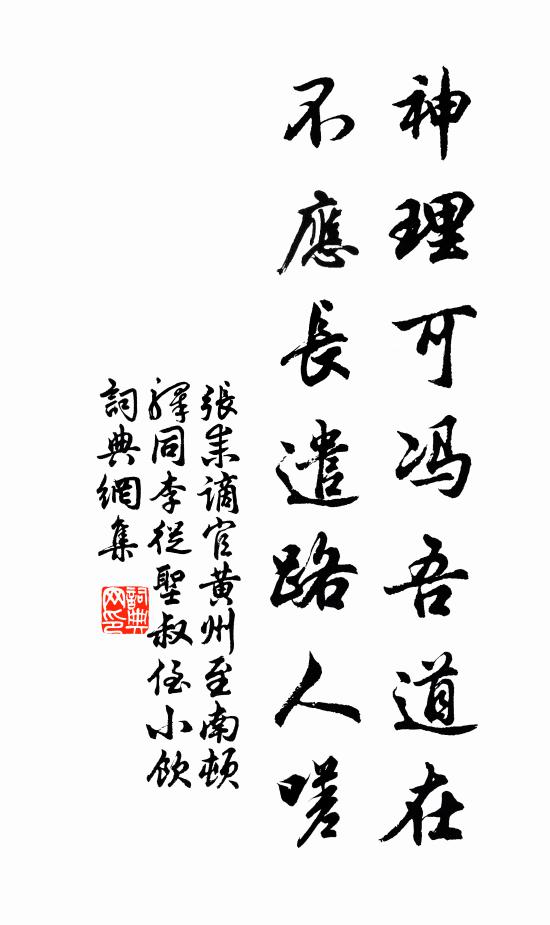 神理可冯吾道在
不應長遣路人嗟
張耒謫官黃州至南頓
驛同李從聖叔侄小飲
詞典網集
詞典網印